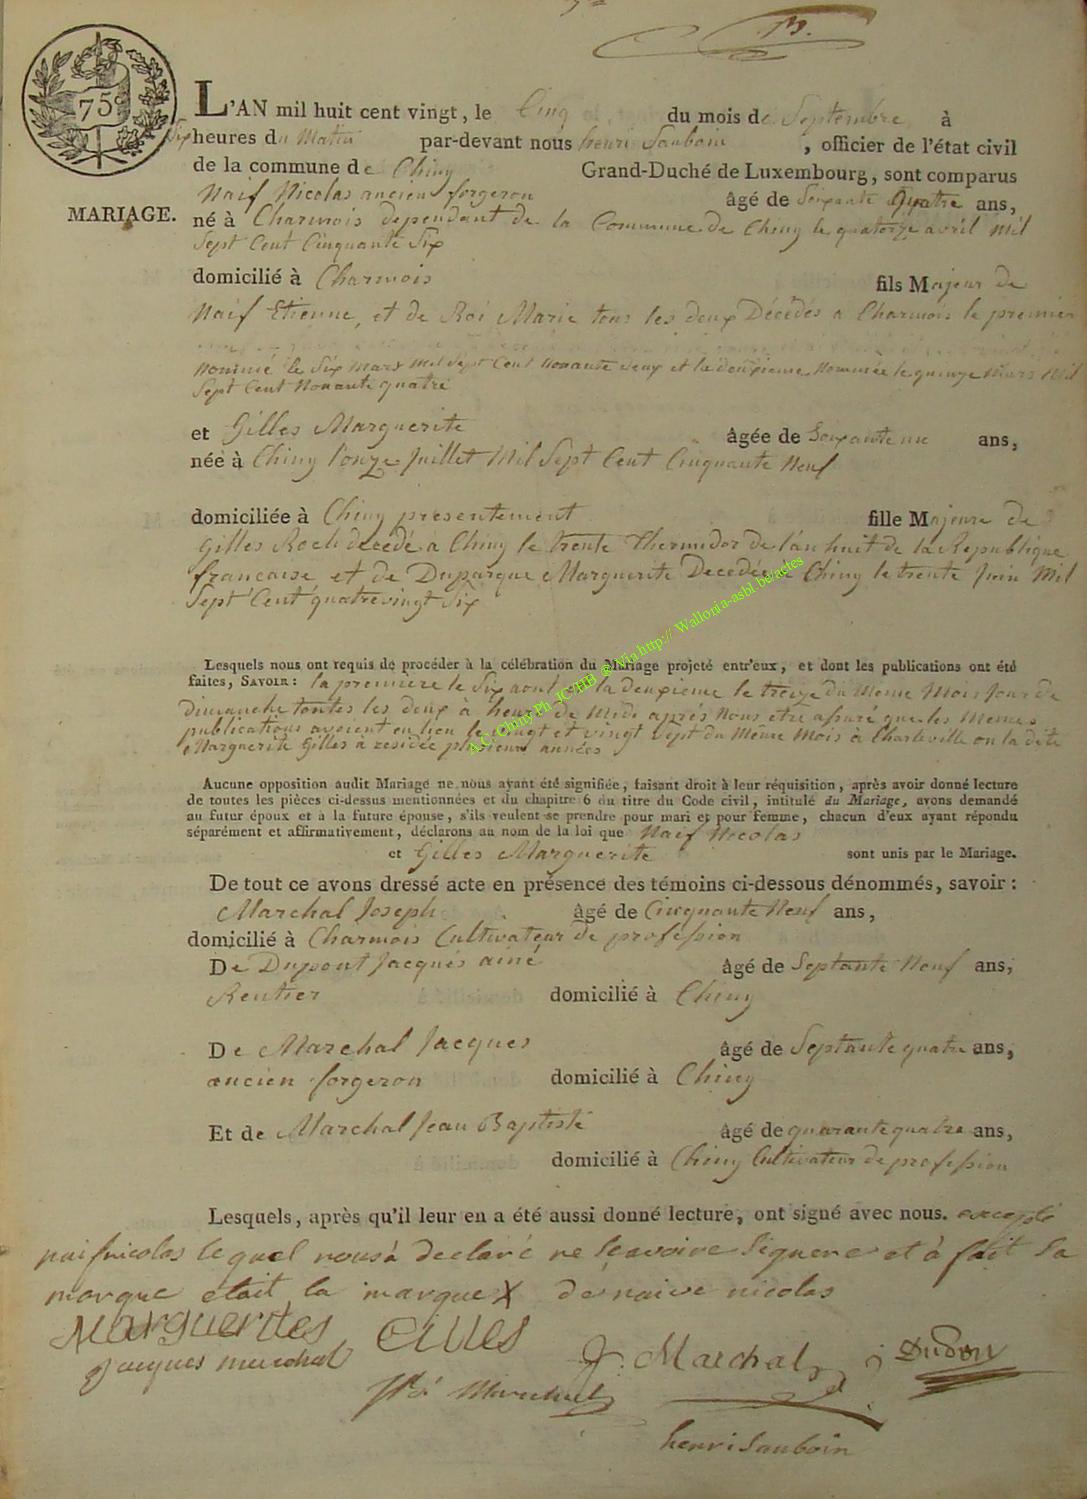 13.
75c
L'AN mil huit cent vingt, le Cinq du mois de Septembre à
Six heures du Matin par-devant nous henri Sauboin, officier de l'état civil
de la commune de Chiny Grand-Duché de Luxembourg, sont comparus
Naif Nicolas ancien forgeron âgé de Soixante quatre ans,
MARIAGE.
né à Charmois dependant de la Commune de Chiny le quatorze avril Mil
Sept Cent Cinquante Six
domicilié à Charmois fils Majeur de
Naif Etienne, et de Roi Marie tous les deux Décédés a Charmois le premier
nommé le Six mars mil Sept Cent Nonante deux et la deuxieme Nommée le quinze Mars Mil
Sept Cent Nonante quatre
et Gilles Marguerite âgée de Soixante une ans,
née à Chiny l'onze Juillet Mil Sept Cent Cinquante Neuf
domiciliée à Chiny presentement fille Majeure de
Gilles Roch decedé a Chiny le trente Thermidor de l'an huit de la Republique
francaise et de Duparque Marguerite Decedée a Chiny le trente Juin Mil
Sept Cent quatrevingt Six
Lesquels nous ont requis de procéder à la célébration du Mariage projeté entr'eux, et dont les publications ont été
faites, SAVOIR: la premiere le Six aout et la deuxieme le treize du Meme Mois Jour de
Dimanche toutes les deux à heure de Midi après Nous etre assuré que les Memes
publications avoient eu lieu le vingt et vingt Sept du Même Mois à Charleville ou la dite
Marguerite Gilles a residée plusieurs années
Aucune opposition audit Mariage ne nous ayant été signifiée, faisant droit à leur réquisition, après avoir donné lecture
de toutes les pièces ci-dessus mentionnées et du chapitre 6 du titre du Code civil, intitulé du Mariage, avons demandé
au futur époux et à la future épouse, s'ils veulent se prendre pour mari et pour femme, chacun d'eux ayant répondu
séparément et affirmativement, déclarons au nom de la loi que Naif Nicolas
et Gilles Marguerite sont unis par le Mariage.
De tout ce avons dressé acte en présence des témoins ci-dessous dénommés, savoir:
Marchal Joseph âgé de Cinquante Neuf ans,
domicilié à Charmois Cultivateur de profession
De Dupont Jacques ainé âgé de Septante Neuf ans,
Rentier domicilié à Chiny
De Marchal Jacques âgé de Septante quatre ans,
ancien forgeron domicilié à Chiny
Et de Marchal Jean Baptiste âgé de quarante quatre ans,
domicilié à Chiny Cultivateur de profession
Lesquels, après qu'il leur en a été aussi donné lecture, ont signé avec nous. excepté
naif nicolas le quel nous à declaré ne sçavoire Signere et à fait Sa
marque etait la marque X de naive nicolas
Marguerites Gilles
Jacques marchal J. Marchal
henri Sauboin
A.C. Chiny Ph. JC HB @ Via http:// Wallonia-asbl.be/actes